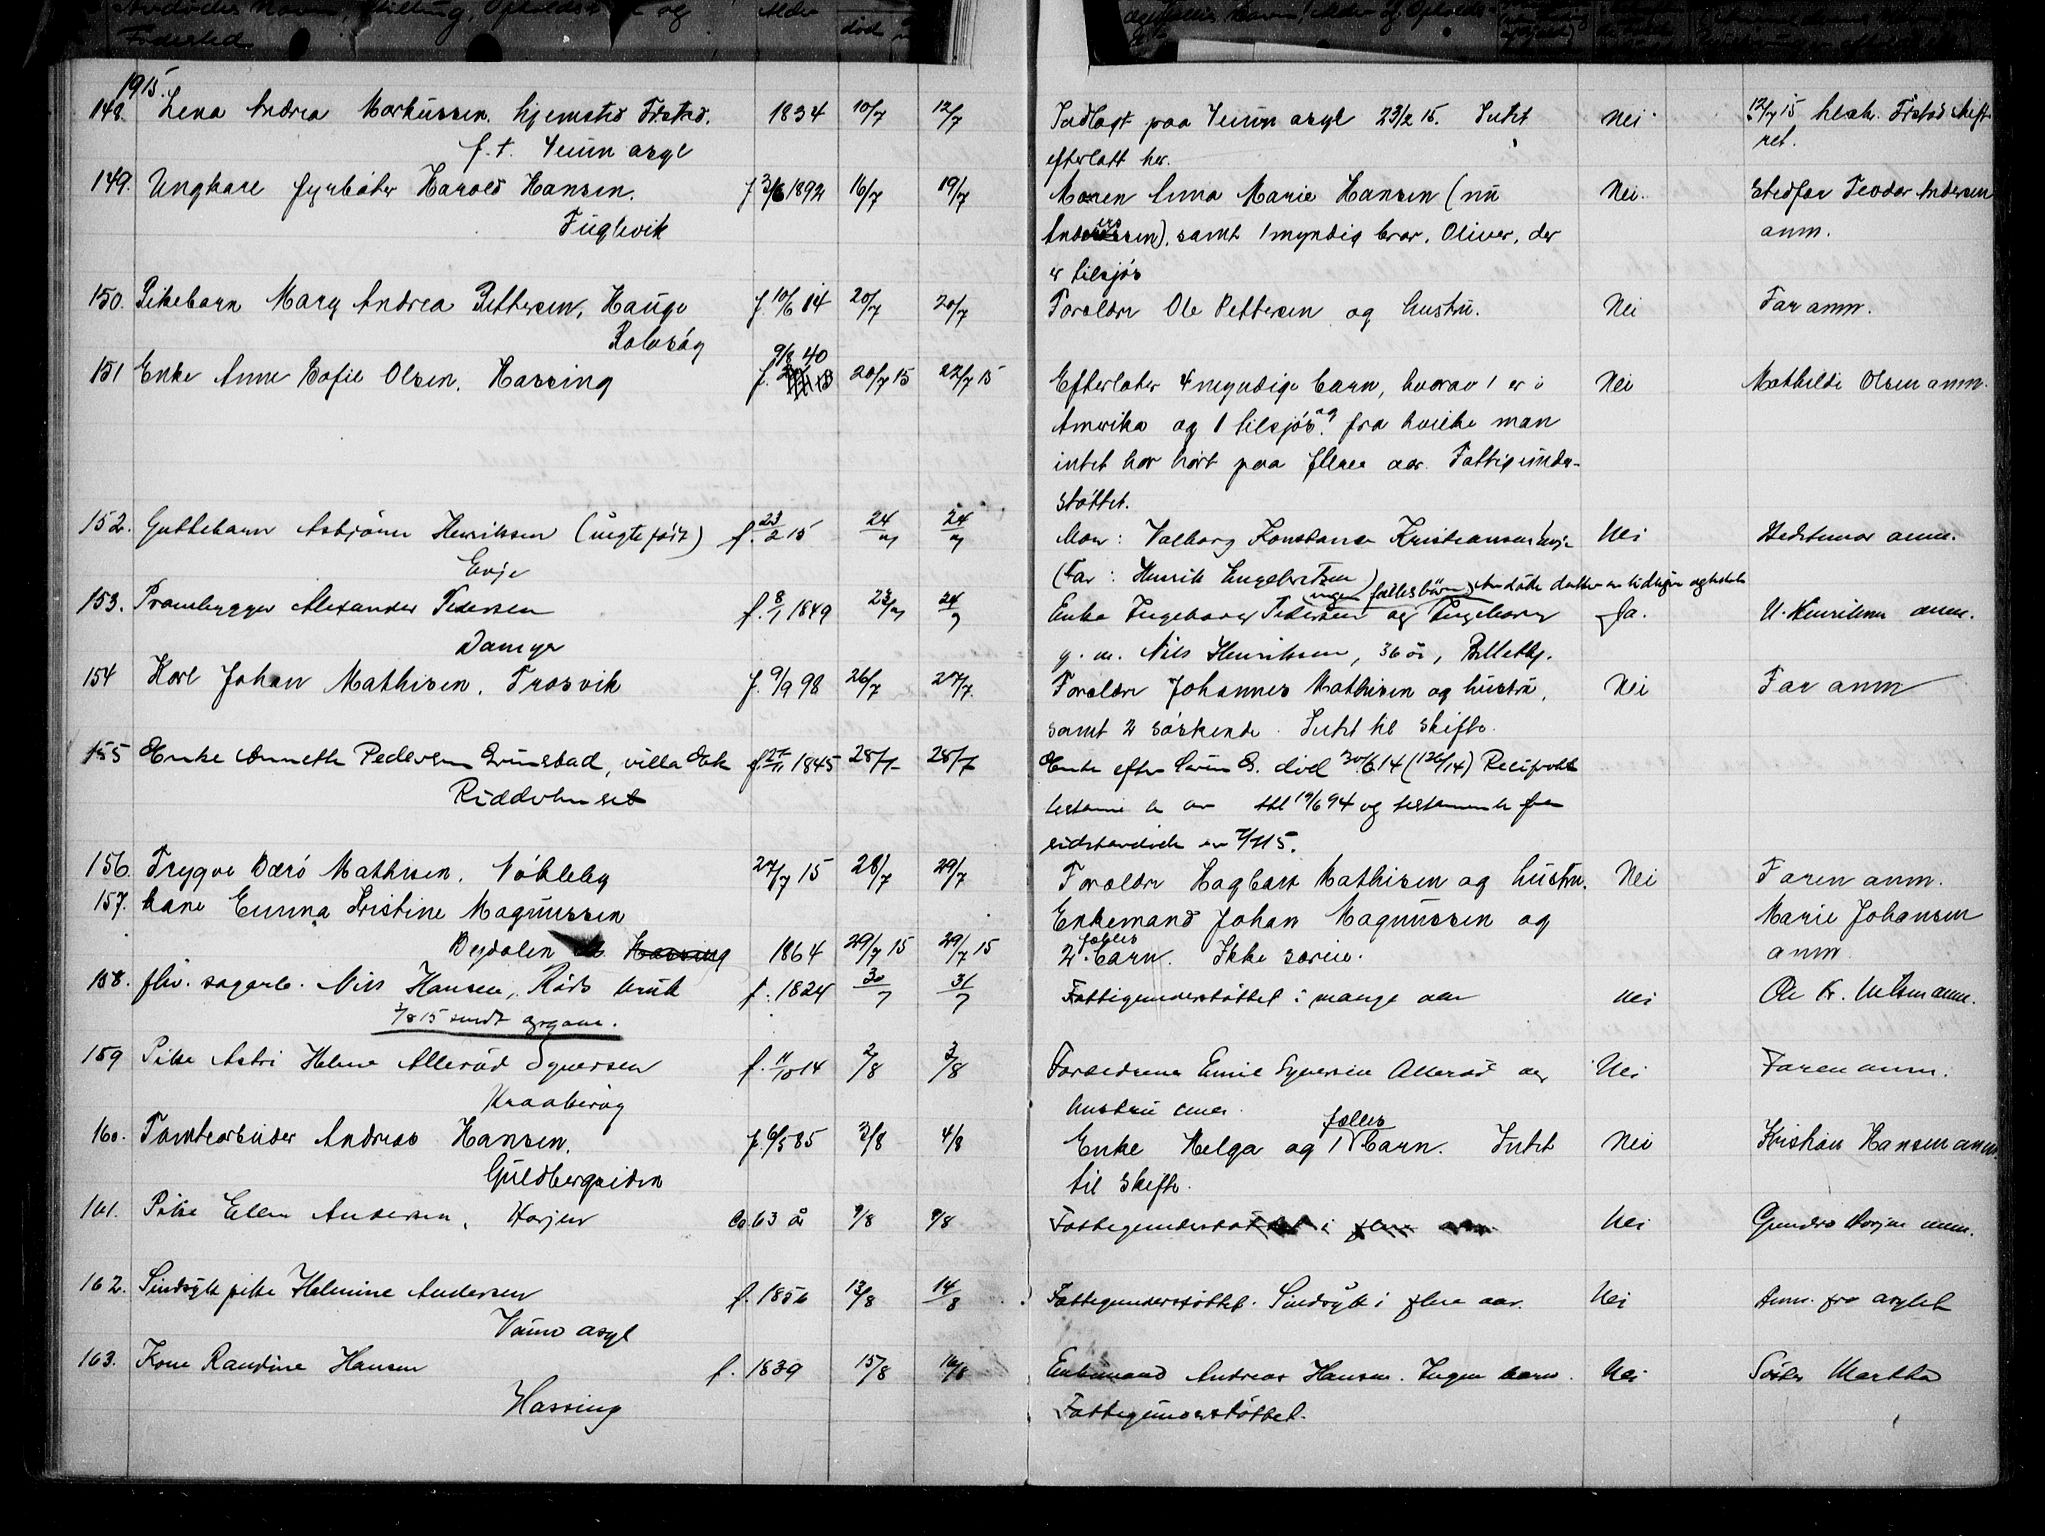 1915.
148. Lena Andrea Markussen. hjemsted Tistad. 1834 10/7 12/7 Indlagt paa Veum asyl 23/2 15. Intet Nei 12/7 15 besk. Tistad skift-
f. t. Veum asyl efterlatt her. ret.
149. Ungkare fyrbøter Harald Hansen. f 3/6 1892 16/7 19/7 Moren Anna Marie Hansen (nu Nei. Stedfar Teodor Andersen
Fuglevik Anderssen), samt 1 myndig bror, Oliver, der anm.
er tilsjøs
150. Pikebarn Mary Andrea Pettersen, Hauge f. 10/6 14 20/7 20/7 Forældre Ole Pettersen og hustru. Nei Far anm.
Rolvsøy
151 Enke Anne Sofie Olsen. Hassing f. 9/8 40 20/7 15 22/7 15 Efterlater 4 myndige barn, hvorav 1 er i Nei Mathilde Olsen anm.
Amerika og 1 tilsjøs og fra hvilke man
intet har hørt paa flere aar. Fattigunder-
støttet.
152. Guttebarn Asbjørn Henriksen (uegte født) f. 23/2 15 24/7 24/7 Mor: Valborg Konstanse Kristiansen Evje Nei Stedsmor anm.
Evje (Far: Henrik Engebretsen)
153. Prambygger Alexander Pedersen f. 8/1 1849 23/7 24/7 Enke Ingeborg Pedersen og Ingeborg Ja. N. Henriksen anm.
ingen fællesbørn
g. m. Nils Henriksen, 36 år,
154 Karl Johan Mathisen. Trosvik f. 9/9 98 26/7 27/7. Forældre Johannes Mathisen og hustru, Nei Far anm
samt 2 søskende. Intet til skifte.
155 Enke Annette Pedersen Grimstad, villa Eek f. 1845 28/7 28/7 Enke efter død 30/6 14 Reciprokt
testamente av 19/6 94 og testamente fra
sidstavdøde av
156. Trygve Værø Mathisen. Nøkleby 27/7 15 28/7 29/7 Forældre Hagbart Mathisen og hustru. Nei Faren anm.
157. Kone Emma Kristine Magnussen Enkemand Johan Magnussen og Marie Johansen
Bydalen Hassing 1864 29/7 15 29/7 15 2 fælles barn. Ikke særeie. anm.
158. fhv. sagarb. Nils Hansen, Røds bruk f. 1824 30/7 31/7 Fattigunderstøttet i mange aar Nei Ole Kr. Nilsen anm.
7/8 15 sendt
159 Pike Astri Helene Allerød Syversen f. 11/10 14 2/8 3/8 Forældrene Emil Syversen Allerød og Nei Faren anm.
Kraaberøy hustru
160. Tomtearbeider Andreas Hansen. f. 6/5 85 3/8 4/8 Enke Helga og 1 fælles barn. Intet Nei Kristian Hansen anm.
Guldbergsiden til skifte.
161. Pike Ellen Andersen, Torjer ca 63 år 9/8 9/8 Fattigunderstøttet i flere aar Nei Gundro Torjer anm.
162. Sindsyk pike Helmine Andersen f. 1856 13/8 14/8 Fattigunderstøttet. Sindsyk i flere aar. Nei Anm. fra asylet
Veum asyl
163. Kone Randine Hansen f. 1839 15/8 16/8 Enkemand Andreas Hansen. Ingen barn. Nei Søster Martha
Hassing Fattigunderstøttet.